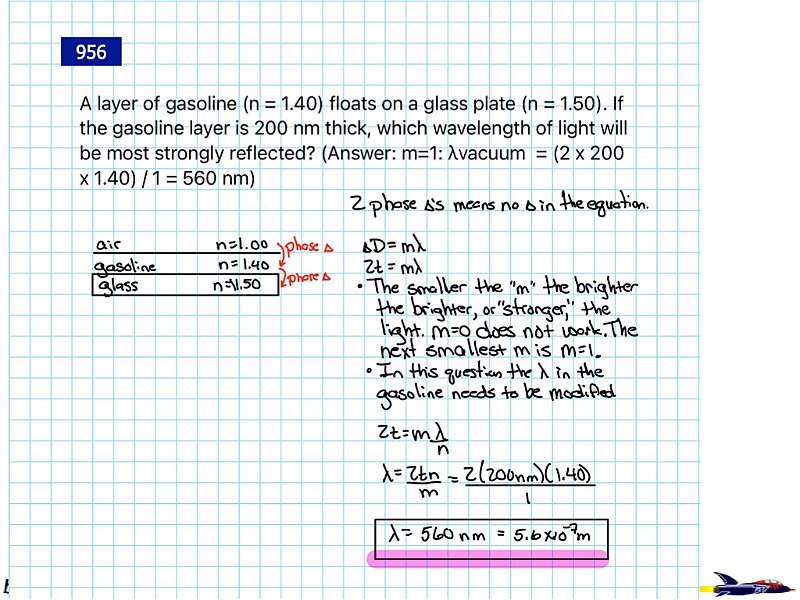 956
A layer of gasoline (n = 1.40) floats on a glass plate (n = 1.50). If
the gasoline layer is 200 nm thick, which wavelength of light will
be most strongly reflected? (Answer: m=1: λvacuum = (2 x 200
x 1.40) / 1 = 560 nm)
2 phase Δ's means no Δ in the equation.
air n=1.00 phase Δ
gasoline n=1.40
glass n=1.50 phase Δ
ΔD = mλ
2t = mλ
• The smaller the "m" the brighter
the brighter, or "stronger," the
light. m=0 does not work. The
next smallest m is m=1.
• In this question the λ in the
gasoline needs to be modified
2t = m λ/n
λ = 2tn/m = 2(200nm)(1.40)/1
λ = 560 nm = 5.6x10⁻⁷m